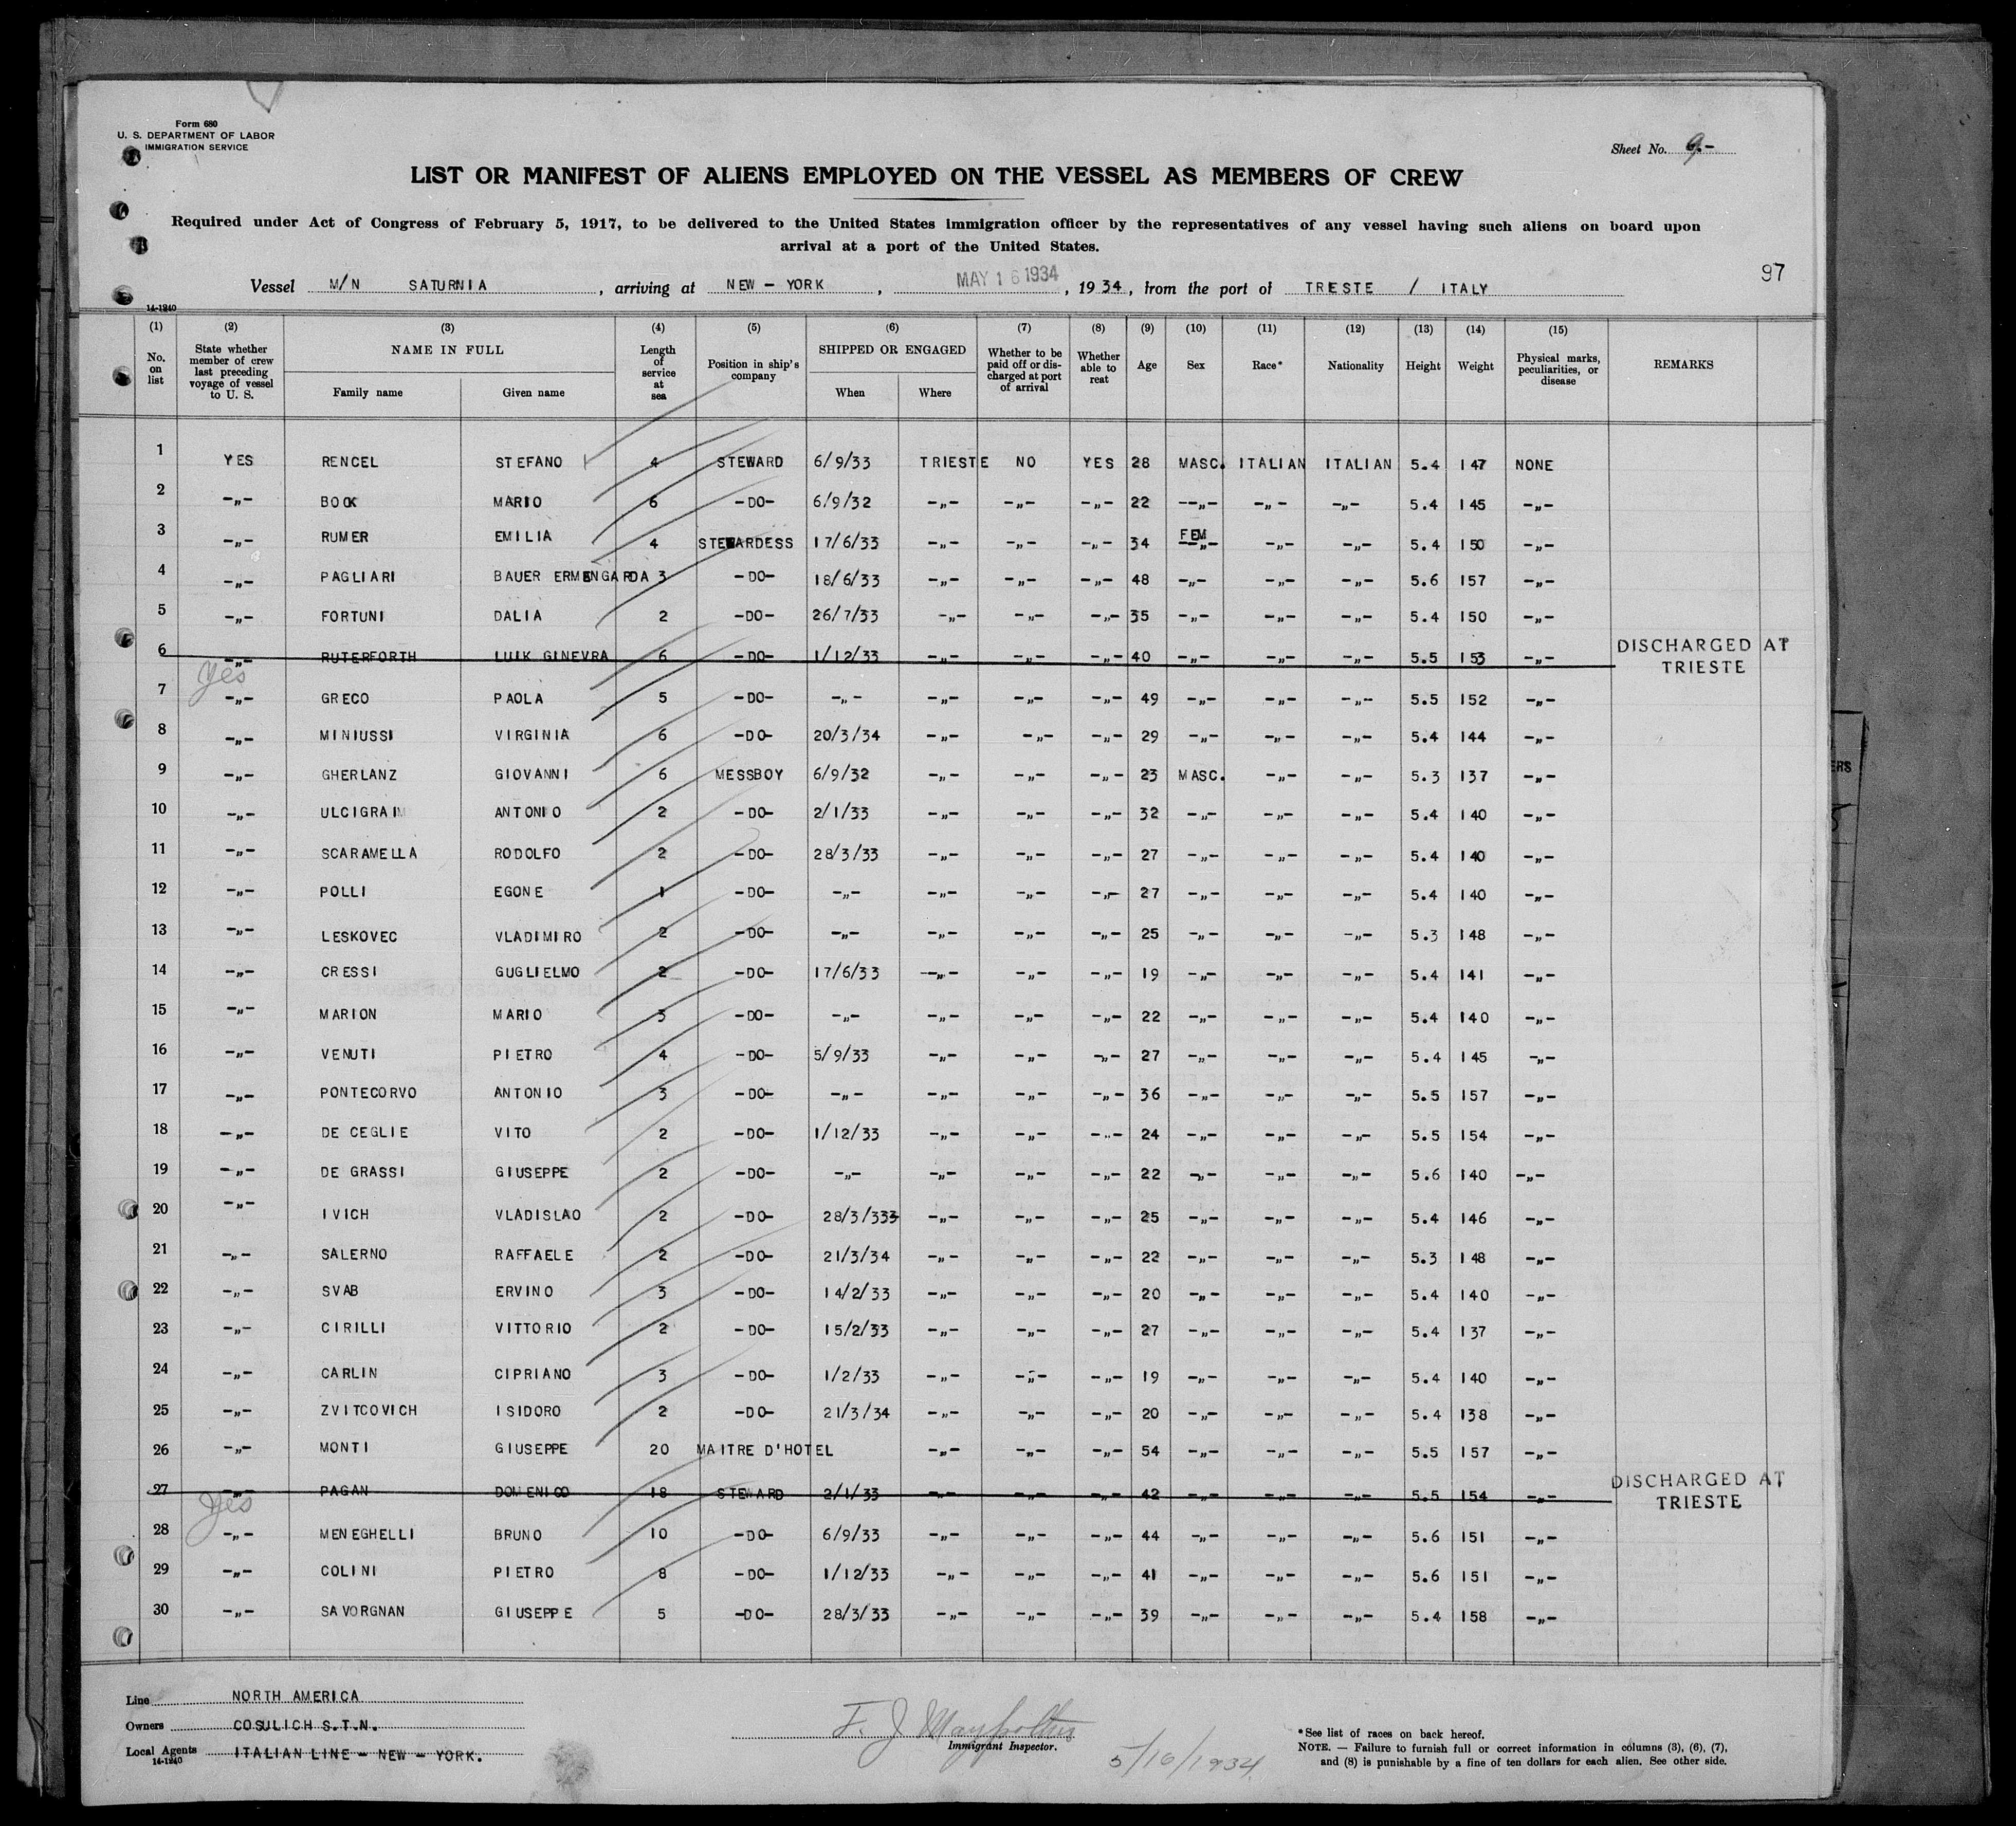 Form 680
U. S. DEPARTMENT OF LABOR
IMMIGRATION SERVICE
Sheet No. 9.-
LIST OR MANIFEST OF ALIENS EMPLOYED ON THE VESSEL AS MEMBERS OF CREW
Required under Act of Congress of February 5, 1917, to be delivered to the United States immigration officer by the representatives of any vessel having such aliens on board upon
arrival at a port of the United States.
97
Vessel M/N SATURNIA, arriving at NEW – YORK, MAY 16 1934, 1934, from the port of TRESTE / ITALY
14-1240
(1) (2) (3) (4) (5) (6) (7) (8) (9) (10) (11) (12) (13) (14) (15)
No. on list State whether member of crew last preceding voyage of vessel to U. S. NAME IN FULL Family name Given name Length of service at sea Position in ship's company SHIPPED OR ENGAGED When Where Whether to be paid off or discharged at port of arrival Whether able to reat Age Sex Race* Nationality Height Weight Physical marks, peculiarities, or disease REMARKS
1 YES RENCEL STEFANO 4 STEWARD 6/9/33 TRIESTE NO YES 28 MASC. ITALIAN ITALIAN 5.4 147 NONE
2 -"- BOOK MARIO 6 -DO- 6/9/32 -"- -"- -"- 22 -"- -"- -"- 5.4 145 -"-
3 -"- RUMER EMILIA 4 STEWARDESS 17/6/33 -"- -"- -"- 34 FEM -"- -"- -"- 5.4 150 -"-
4 -"- PAGLIARI BAUER ERMENGARDA 3 -DO- 18/6/33 -"- -"- -"- 48 -"- -"- -"- 5.6 157 -"-
5 -"- FORTUNI DALIA 2 -DO- 26/7/33 -"- -"- -"- 35 -"- -"- -"- 5.4 150 -"-
6 -"- RUTERFORTH LUIK GINEVRA 6 -DO- 1/12/33 -"- -"- -"- 40 -"- -"- -"- 5.5 153 -"- DISCHARGED AT TRIESTE
Yes
7 -"- GRECO PAOLA 5 -DO- -"- -"- -"- -"- 49 -"- -"- -"- 5.5 152 -"-
8 -"- MINIUSSI VIRGINIA 6 -DO- 20/3/34 -"- -"- -"- 29 -"- -"- -"- 5.4 144 -"-
9 -"- GHERLANZ GIOVANNI 6 MESSBOY 6/9/32 -"- -"- -"- 23 MASC. -"- -"- 5.3 137 -"-
10 -"- ULCIGRAI ANTONIO 2 -DO- 2/1/33 -"- -"- -"- 32 -"- -"- -"- 5.4 140 -"-
11 -"- SCARAMELLA RODOLFO 2 -DO- 28/3/33 -"- -"- -"- 27 -"- -"- -"- 5.4 140 -"-
12 -"- POLLI EGONE 1 -DO- -"- -"- -"- -"- 27 -"- -"- -"- 5.4 140 -"-
13 -"- LESKOVEC VLADIMIRO 2 -DO- -"- -"- -"- -"- 25 -"- -"- -"- 5.3 148 -"-
14 -"- CRESSI GUGLIELMO 2 -DO- 17/6/33 -"- -"- -"- 19 -"- -"- -"- 5.4 141 -"-
15 -"- MARION MARIO 3 -DO- -"- -"- -"- -"- 22 -"- -"- -"- 5.4 140 -"-
16 -"- VENUTI PIETRO 4 -DO- 5/9/33 -"- -"- -"- 27 -"- -"- -"- 5.4 145 -"-
17 -"- PONTECORVO ANTONIO 3 -DO- -"- -"- -"- -"- 36 -"- -"- -"- 5.5 157 -"-
18 -"- DE CEGLIE VITO 2 -DO- 1/12/33 -"- -"- -"- 24 -"- -"- -"- 5.5 154 -"-
19 -"- DE GRASSI GIUSEPPE 2 -DO- -"- -"- -"- -"- 22 -"- -"- -"- 5.6 140 -"-
20 -"- IVICH VLADISLAO 2 -DO- 28/3/333 -"- -"- -"- 25 -"- -"- -"- 5.4 146 -"-
21 -"- SALERNO RAFFAELE 2 -DO- 21/3/34 -"- -"- -"- 22 -"- -"- -"- 5.3 148 -"-
22 -"- SVAB ERVINO 3 -DO- 14/2/33 -"- -"- -"- 20 -"- -"- -"- 5.4 140 -"-
23 -"- CIRILLI VITTORIO 2 -DO- 15/2/33 -"- -"- -"- 27 -"- -"- -"- 5.4 137 -"-
24 -"- CARLIN CIPRIANO 3 -DO- 1/2/33 -"- -"- -"- 19 -"- -"- -"- 5.4 140 -"-
25 -"- ZVITCOVICH ISIDORO 2 -DO- 21/3/34 -"- -"- -"- 20 -"- -"- -"- 5.4 138 -"-
26 -"- MONTI GIUSEPPE 20 MAITRE D'HOTEL -"- -"- -"- 54 -"- -"- -"- 5.5 157 -"-
27 -"- PAGAN DOMENICO 18 STEWARD 2/1/33 -"- -"- -"- 42 -"- -"- -"- 5.5 154 -"- DISCHARGED AT TRIESTE
Yes
28 -"- MENEGHELLI BRUNO 10 -DO- 6/9/33 -"- -"- -"- 44 -"- -"- -"- 5.6 151 -"-
29 -"- COLINI PIETRO 8 -DO- 1/12/33 -"- -"- -"- 41 -"- -"- -"- 5.6 151 -"-
30 -"- SAVORGNAN GIUSEPPE 5 -DO- 28/3/33 -"- -"- -"- 39 -"- -"- -"- 5.4 158 -"-
Line NORTH AMERICA
Owners COSULICH S.T.N.
Local Agents ITALIAN LINE – NEW – YORK.
14-1240
F. J.
Immigrant Inspector.
5/16/1934
*See list of races on back hereof.
NOTE. — Failure to furnish full or correct information in columns (3), (6), (7),
and (8) is punishable by a fine of ten dollars for each alien. See other side.